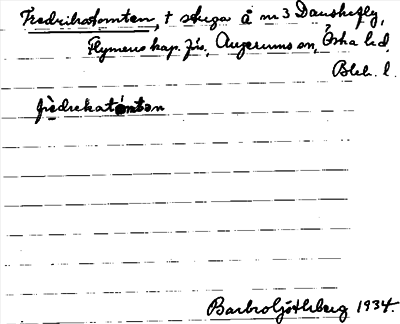 Fredrikatomten, † stuga å nr 3 Danskefly,
Flymens kap. förs., Augerums sn, Östra hd,
Blek. l.
fredrekatomten
Barbro Götherberg 1934.